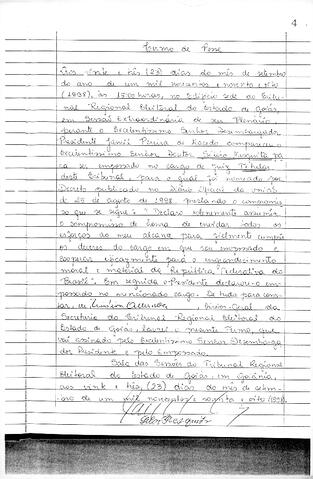 4
Termo de Posse
Aos vinte e três (23) dias do mês de setembro
do ano de um mil novecentos e noventa e oito
(1998), às 15:00 horas, no Edifício sede do Tribu-
nal Regional Eleitoral do Estado de Goiás,
em Sessão Extraordinária de seu Plenário,
perante o Excelentíssimo Senhor Desembargador
Presidente Jamil Pereira de Macedo compareceu o
Excelentíssimo Senhor Doutor Mesquita pa
ra ser empossado no cargo de Juiz
deste Tribunal, para o qual foi nomeado por
Decreto publicado no Diário Oficial da União
de 25 de agosto de 1998, prestando o compromis-
so que se segue: "Declaro solenemente assumir
o compromisso de honra de envidar todos os
esforços ao meu alcance para fielmente cumprir
os deveres do cargo em que sou empossado e
cooperar eficazmente para o engrandecimento
moral e material da República Federativa do
Brasil". Em seguida o Presidente declarou-o em-
possado no mencionado cargo. De tudo para cons-
tar, eu Diretor-Geral da
Secretaria do Tribunal Regional Eleitoral do
Estado de Goiás, lavrei o presente Termo, que
vai assinado pelo Excelentíssimo Senhor Desembarga-
dor Presidente e pelo Empossado.
Sala das Sessões do Tribunal Regional
Eleitoral do Estado de Goiás, em Goiânia,
aos vinte e três (23) dias do mês de setem-
bro de um mil novecentos e noventa e oito (1998).